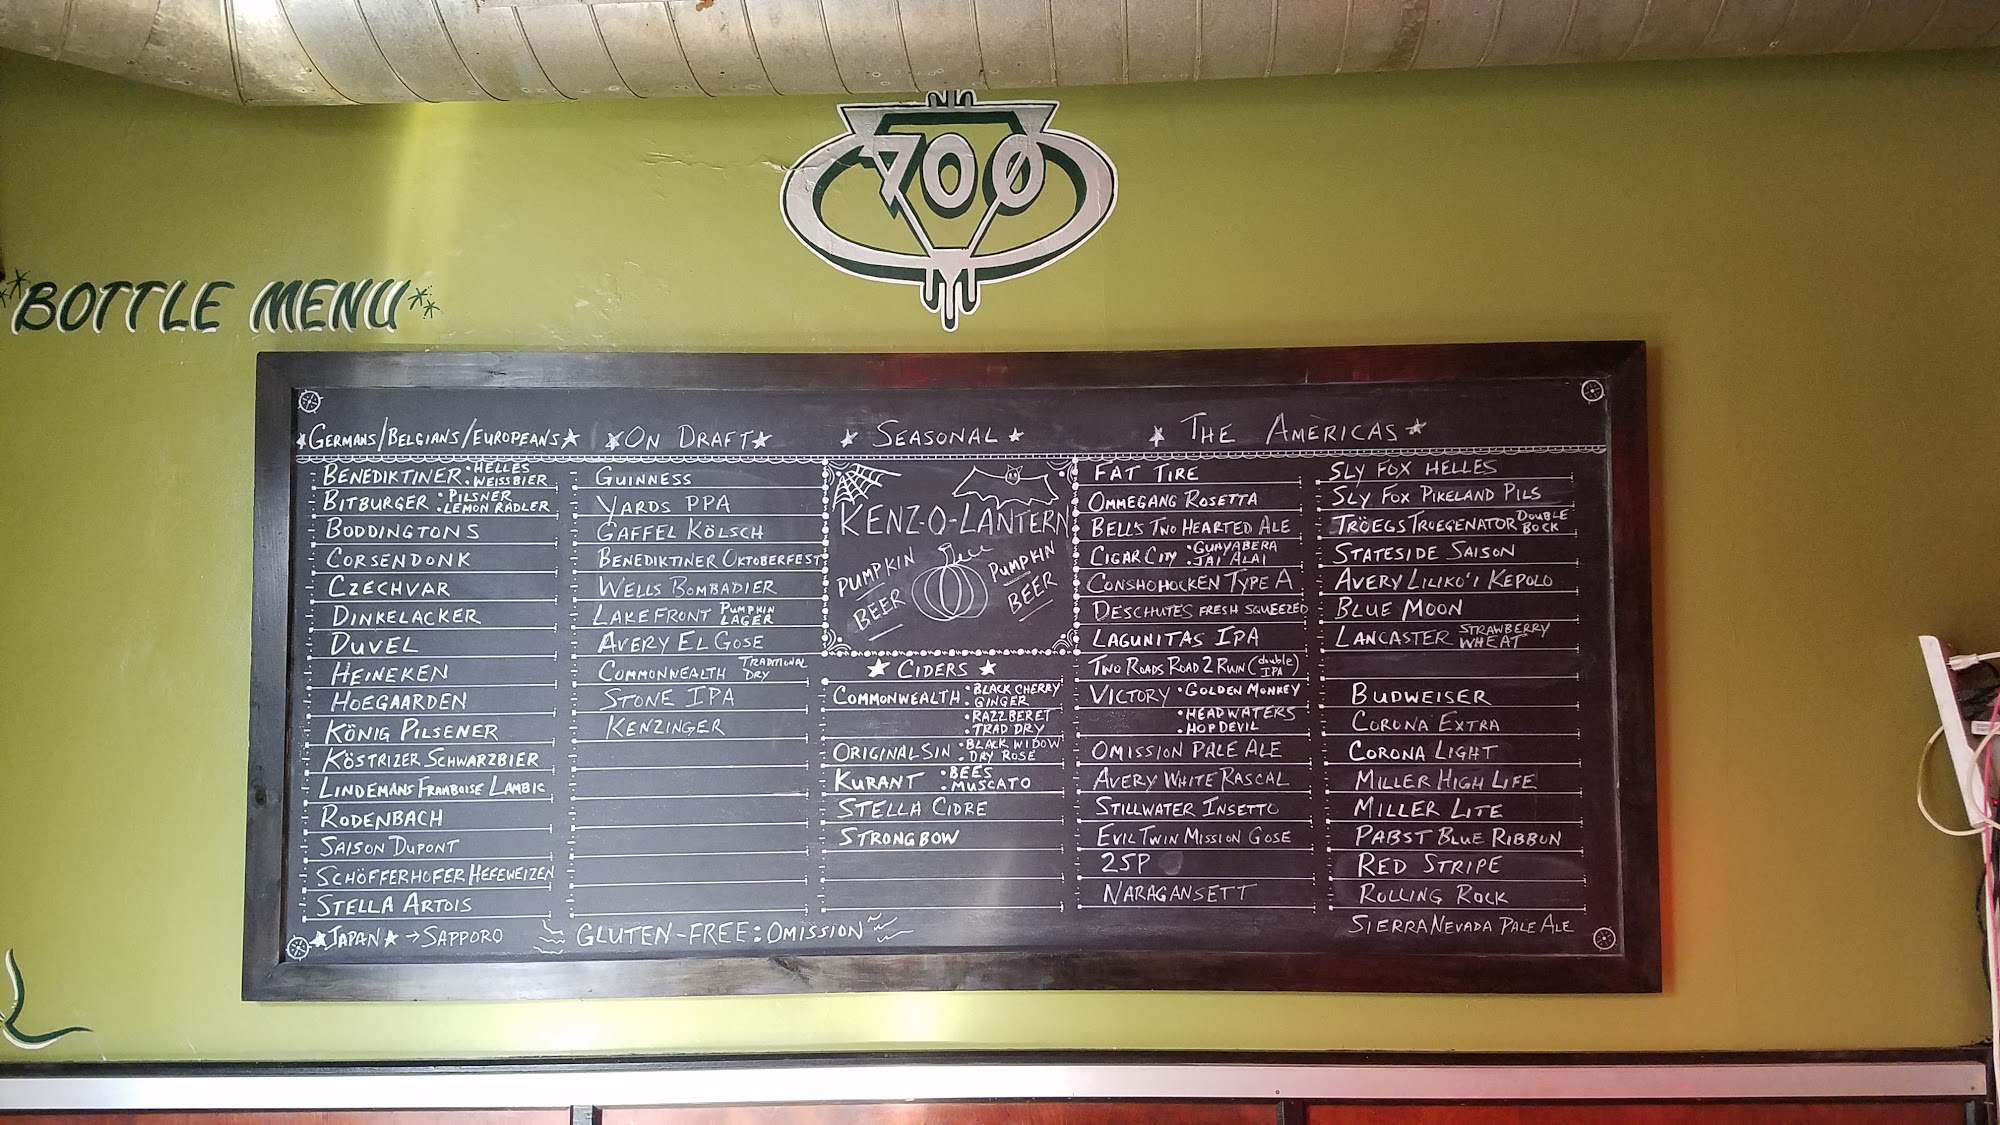 700
BOTTLE MENU
GERMANS/BELGIANS/EUROPEANS
BENEDIKTINER • HELLES
• WEISSBIER
BITBURGER • PILSNER
• LEMON RADLER
BODDINGTONS
CORSENDONK
CZECHVAR
DINKELACKER
DUVEL
HEINEKEN
HOEGAARDEN
KÖNIG PILSENER
KÖSTRIZER SCHWARZBIER
LINDEMANS FRAMBOISE LAMBIC
RODENBACH
SAISON DUPONT
SCHÖFFERHOFER HEFEWEIZEN
STELLA ARTOIS
JAPAN → SAPPORO
ON DRAFT
GUINNESS
YARDS PPA
GAFFEL KÖLSCH
BENEDIKTINER OKTOBERFEST
WELLS BOMBADIER
LAKEFRONT PUMPKIN
LAGER
AVERY EL GOSE
COMMONWEALTH TRADITIONAL
DRY
STONE IPA
KENZINGER
GLUTEN-FREE: OMISSION
SEASONAL
KENZ-O-LANTERN
PUMPKIN
BEER
PUMPKIN
BEER
CIDERS
COMMONWEALTH • BLACK CHERRY
• GINGER
• RAZZBERET
• TRAD DRY
ORIGINAL SIN • BLACK WIDOW
• DRY ROSÉ
KURANT • BEES
• MUSCATO
STELLA CIDRE
STRONGBOW
THE AMERICAS
FAT TIRE
OMMEGANG ROSETTA
BELL'S TWO HEARTED ALE
CIGAR CITY • GUAYABERA
• JAI ALAI
CONSHOHOCKEN TYPE A
DESCHUTES FRESH SQUEEZED
LAGUNITAS IPA
TWO ROADS ROAD 2 RUIN (double
IPA)
VICTORY • GOLDEN MONKEY
• HEADWATERS
• HOPDEVIL
OMISSION PALE ALE
AVERY WHITE RASCAL
STILLWATER INSETTO
EVIL TWIN MISSION GOSE
25P
NARAGANSETT
SLY FOX HELLES
SLY FOX PIKELAND PILS
TRÖEGS TROEGENATOR DOUBLE
BOCK
STATESIDE SAISON
AVERY LILIKO'I KEPOLO
BLUE MOON
LANCASTER STRAWBERRY
WHEAT
BUDWEISER
CORONA EXTRA
CORONA LIGHT
MILLER HIGH LIFE
MILLER LITE
PABST BLUE RIBBON
RED STRIPE
ROLLING ROCK
SIERRA NEVADA PALE ALE